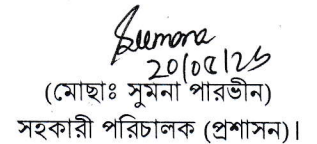 Sumona
20/05/25
(মোছাঃ সুমনা পারভীন)
সহকারী পরিচালক (প্রশাসন)।